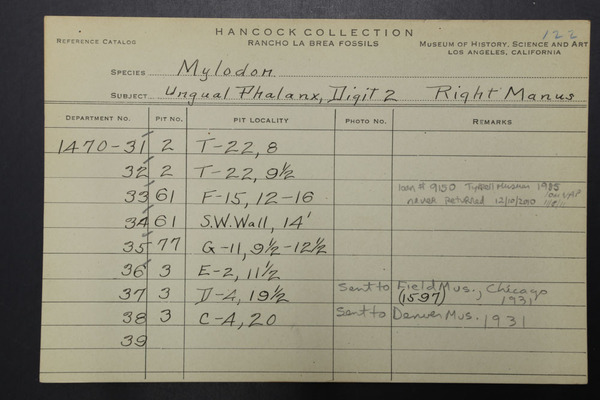 HANCOCK COLLECTION
122
REFERENCE CATALOG
RANCHO LA BREA FOSSILS
MUSEUM OF HISTORY, SCIENCE AND ART
LOS ANGELES, CALIFORNIA
SPECIES Mylodon
SUBJECT Ungual Phalanx, Digit 2 Right Manus
DEPARTMENT NO. PIT NO. PIT LOCALITY PHOTO NO. REMARKS
1470-31 2 T-22, 8
32 2 T-22, 9½
33 61 F-15, 12-16 loan # 9150 Museum 1985
never returned 12/10/2010
34 61 S.W. Wall, 14'
35 77 G-11, 9½-12½
36 3 E-2, 11½
37 3 D-4, 19½ Sent to Field Mus., Chicago
(1597) 1931
38 3 C-A, 20 Sent to Denver Mus. 1931
39